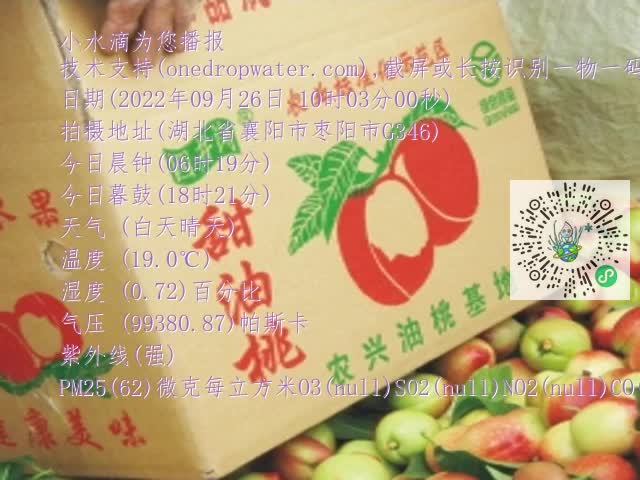 小水滴为您播报
技术支持(onedropwater.com),截屏或长按识别一物一码
日期(2022年09月26日 10时03分00秒)
拍摄地址(湖北省襄阳市枣阳市G346)
今日晨钟(06时19分)
今日暮鼓(18时21分)
天气 (白天晴天)
温度 (19.0℃)
湿度 (0.72)百分比
气压 (99380.87)帕斯卡
紫外线(强)
PM25(62)微克每立方米O3(null)SO2(null)NO2(null)CO
甜油桃
农兴油桃基地
水果
健康美味